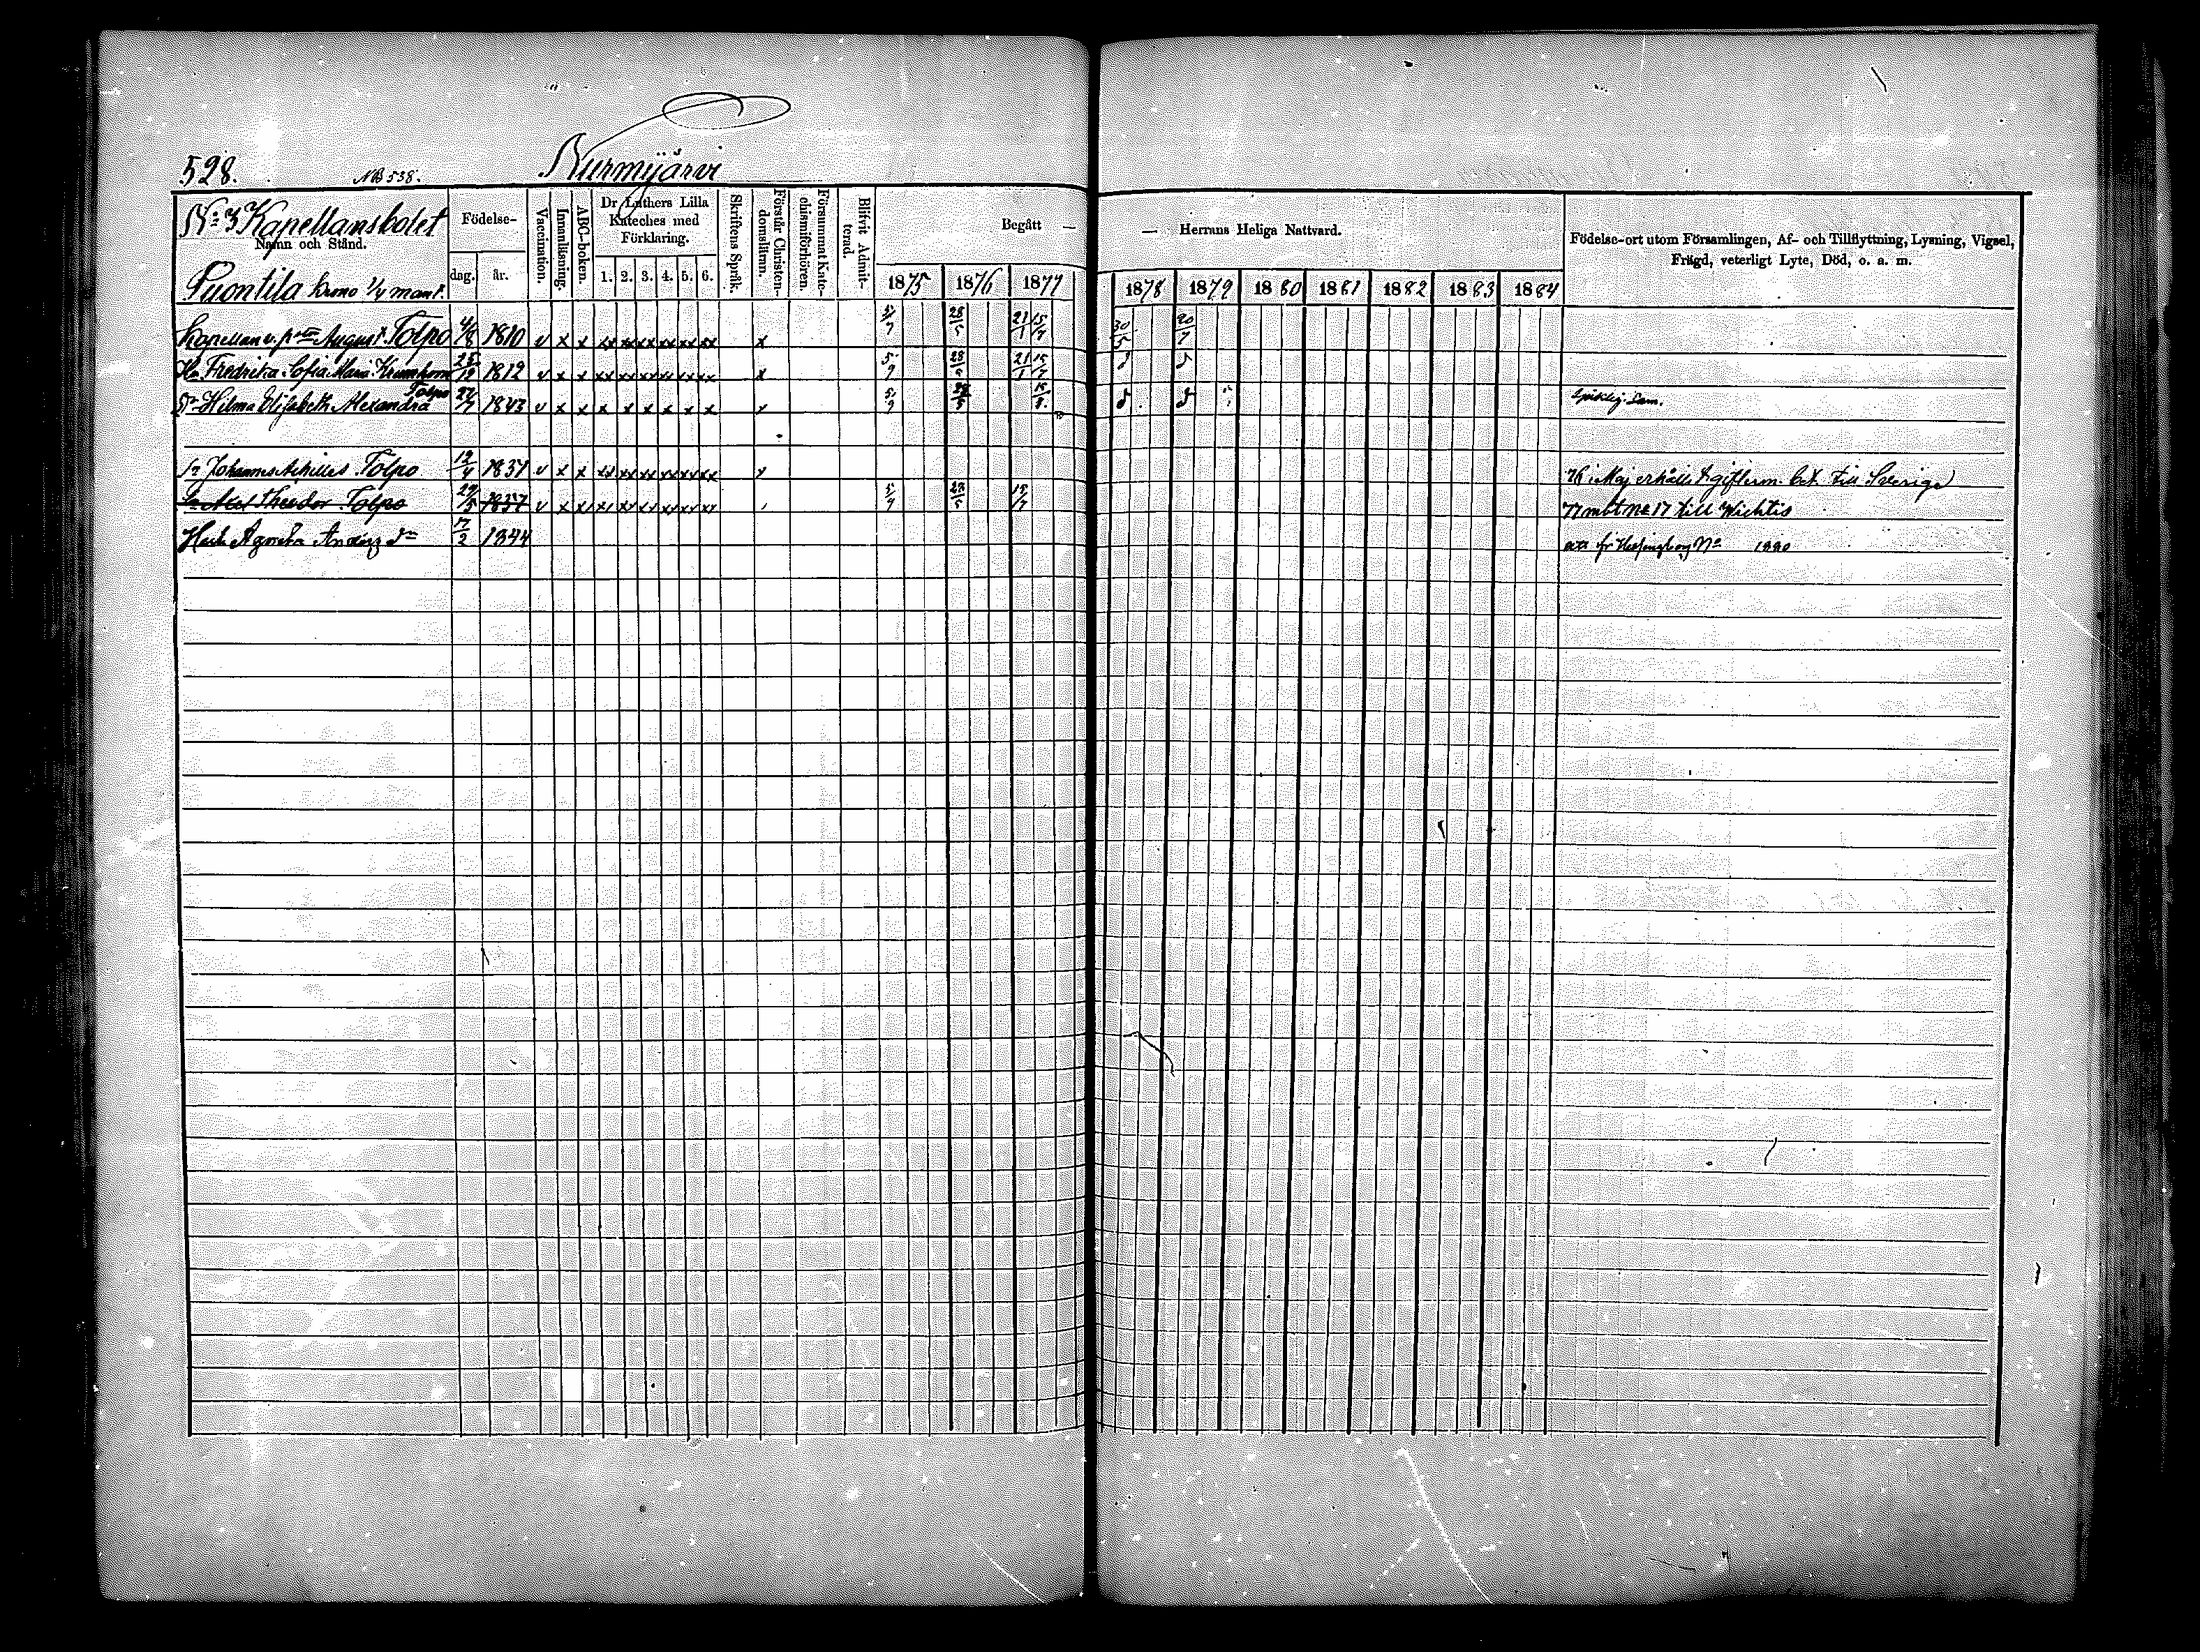 528. NB 538. Nurmijärvi
No 3 Kapellansbolet
Namn och Stånd.
Puontila krono 1/4 mant.
Födelse-
dag. år.
Vaccination.
Innanläsning.
ABC-boken.
Dr Luthers Lilla
Kateches med
Förklaring.
1. 2. 3. 4. 5. 6.
Skriftens Språk.
Förstår Christen-
domslämn.
Försummat Kate-
chismiförhören.
Blifvit Admit-
terad.
Begått —
1875 1876 1877
— Herrans Heliga Nattvard.
1878 1879 1880 1881 1882 1883 1884
Födelse-ort utom Församlingen, Af- och Tillflyttning, Lysning, Vigsel,
Frägd, veterligt Lyte, Död, o. a. m.
Kapellan August Tolpo 4/8 1810 v x x xx xx xx xx xx xx x 5/9 28/5 21/1 15/7 30/5 20/7
Hu Fredrika Sofia Maria 25/12 1812 v x x xx xx xx xx xx xx x 5/9 28/5 21/1 15/7
Tolpo
Dr Hilma Elisabeth Alexandra 27/7 1843 v x x x x x x x x 5/9 28/5
Sn Johannes Achilles Tolpo 19/4 1837 v x x xx xx xx xx xx xx 76 i Maj erhållit gifterm. bet. till Sverige
Sn Axel Theodor Tolpo 29/5 1857 v x 5/9 28/5 15/7 77 mbt No 17 till Wichtis
Agneta dr 17/2 1844 1880